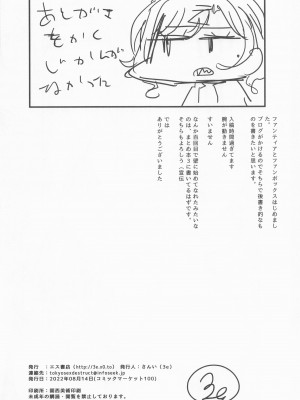 あとがき
をかく
じかんが
なかった
ファンティアとファンボックスはじめまし
た。
ブログがかけるのでそちらで後書き的なも
のを書きたいと思います。
入稿時間過ぎてます
腕が動きません
すいません
なんか前回目で壁に始めてなれたみたいな
のは、まとめ本3に書いてるはずです。
そちらもよろしう（宣伝
では
ありがとうございました
発行　：エス書店（http://3e.x0.to）　発行人：さんい（3e）
連絡先：tokyosexdestruct@infoseek.jp
発行日：2022年08月14日(コミックマーケット100)
印刷所：関西美術印刷
※成年の購読・閲覧を禁止しております。
3e